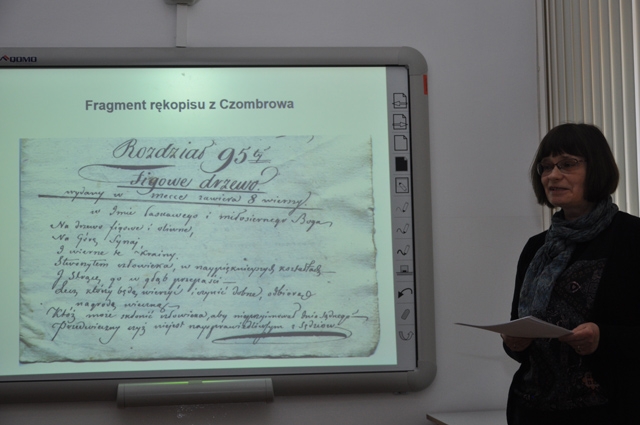 QOMO
Fragment rękopisu z Czombrowa
Rozdział 95ty
Figowe drzewo
wydany w mecce zawiera 8 wierszy
w Imie łaskawego i miłosiernego Boga
Na drzewo figowe i oliwne,
Na Górę Synaj
I wierne te Krainy.
Stworzyłem człowieka, w naypięknieyszych kształtach
I go w głąb przepaści
Lecz którzy będą wierzyć i czynić dobre, odbiorą
nagrodę wieczną
Któż może skłonić człowieka, aby dnia Sądnego
Przedwieczny czyż niejest naysprawiedliwszym z Sędziów